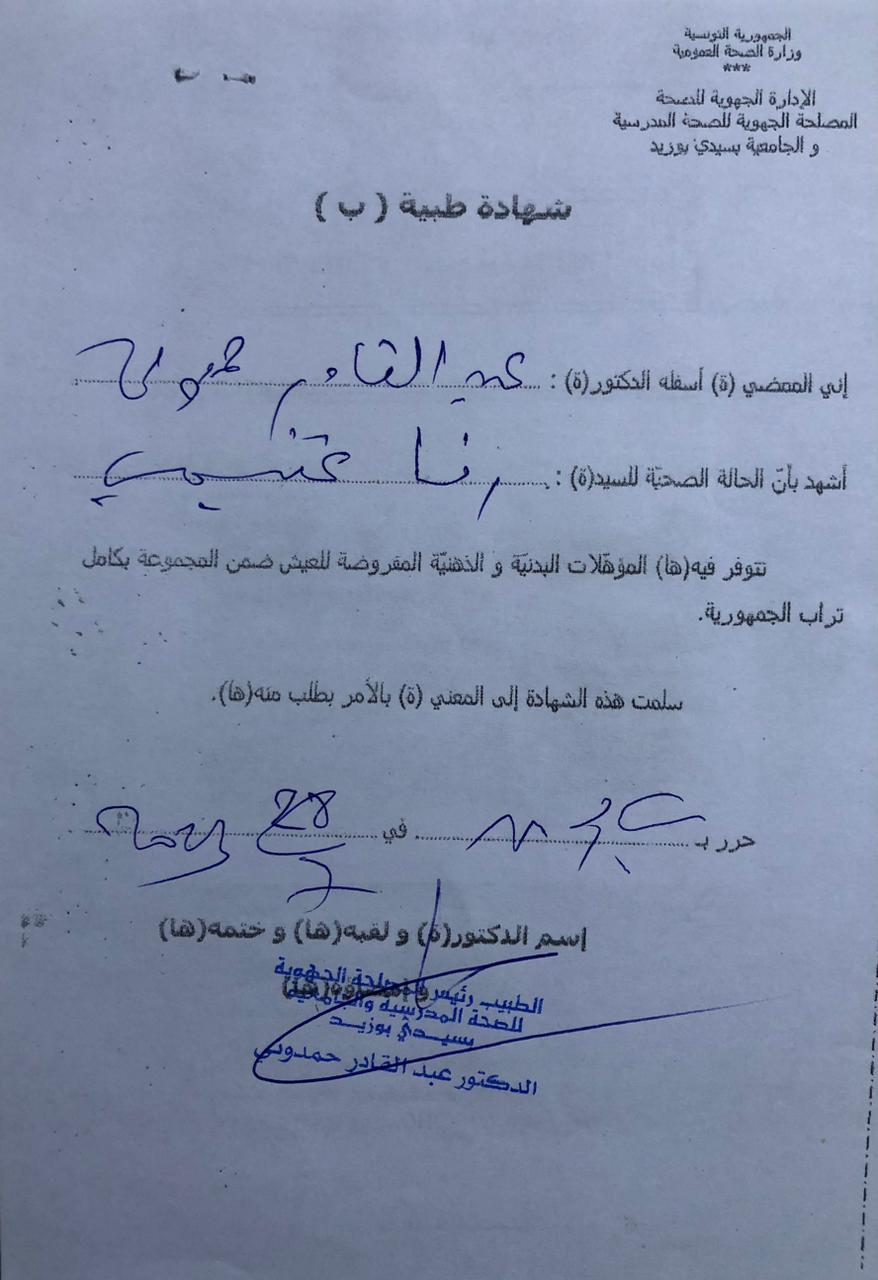 الجمهورية التونسية
وزارة الصحة العمومية
***
الإدارة الجهوية للصحة
المصلحة الجهوية للصحة المدرسية
و الجامعية بسيدي بوزيد
شهادة طبية ( ب )
إني الممضي (ة) أسفله الدكتور(ة) : عبد القادر حمدوني
أشهد بأنّ الحالة الصحيّة للسيد(ة) :
تتوفر فيه(ها) المؤهّلات البدنيّة و الذهنيّة المفروضة للعيش ضمن المجموعة بكامل
تراب الجمهورية.
سلمت هذه الشهادة إلى المعني (ة) بالأمر بطلب منه(ها).
حرر بـ في
إسم الدكتور(ة) و لقبه(ها) و ختمه(ها)
و إمضاؤه(ها)
الطبيب رئيس المصلحة الجهوية
للصحة المدرسية والجامعية
بسيدي بوزيد
الدكتور عبد القادر حمدوني